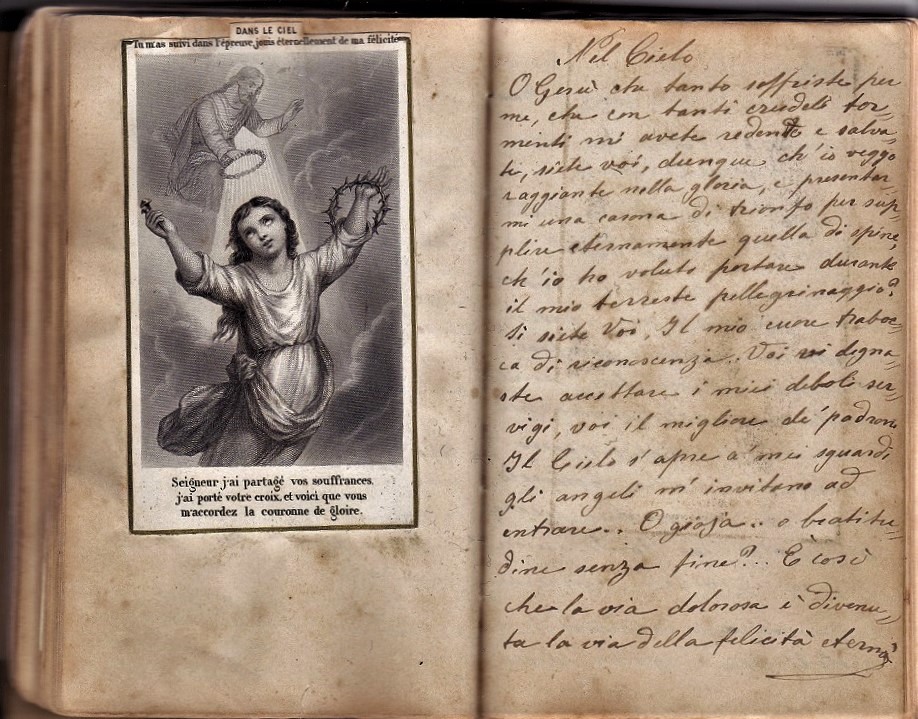 DANS LE CIEL
Tu m'as suivi dans l'épreuve, jouis éternellement de ma félicité
Seigneur j'ai partagé vos souffrances,
j'ai porté votre croix, et voici que vous
m'accordez la couronne de gloire.
Nel Cielo
O Gesù che tanto soffriste per
me, che con tanti crudeli tor„
menti mi avete redento e salva„
te, siete voi, dunque ch'io veggo
raggiante nella gloria, e presentar„
mi una corona di trionfo per sup„
plire eternamente quella di spine,
ch'io ho voluto portare durante
il mio terreste pellegrinaggio?
Si siete Voi, Il mio cuore traboc„
ca di riconoscenza.. Voi vi degna„
ste accettare i miei deboli ser„
vigi, voi il migliore de' padroni
Il Cielo s'apre a' miei sguardi
gli angeli m'invitano ad
entrare.. O gioja.. o beatitu„
dine senza fine?.. È così
che la via dolorosa è divenu„
ta la via della felicità eterna